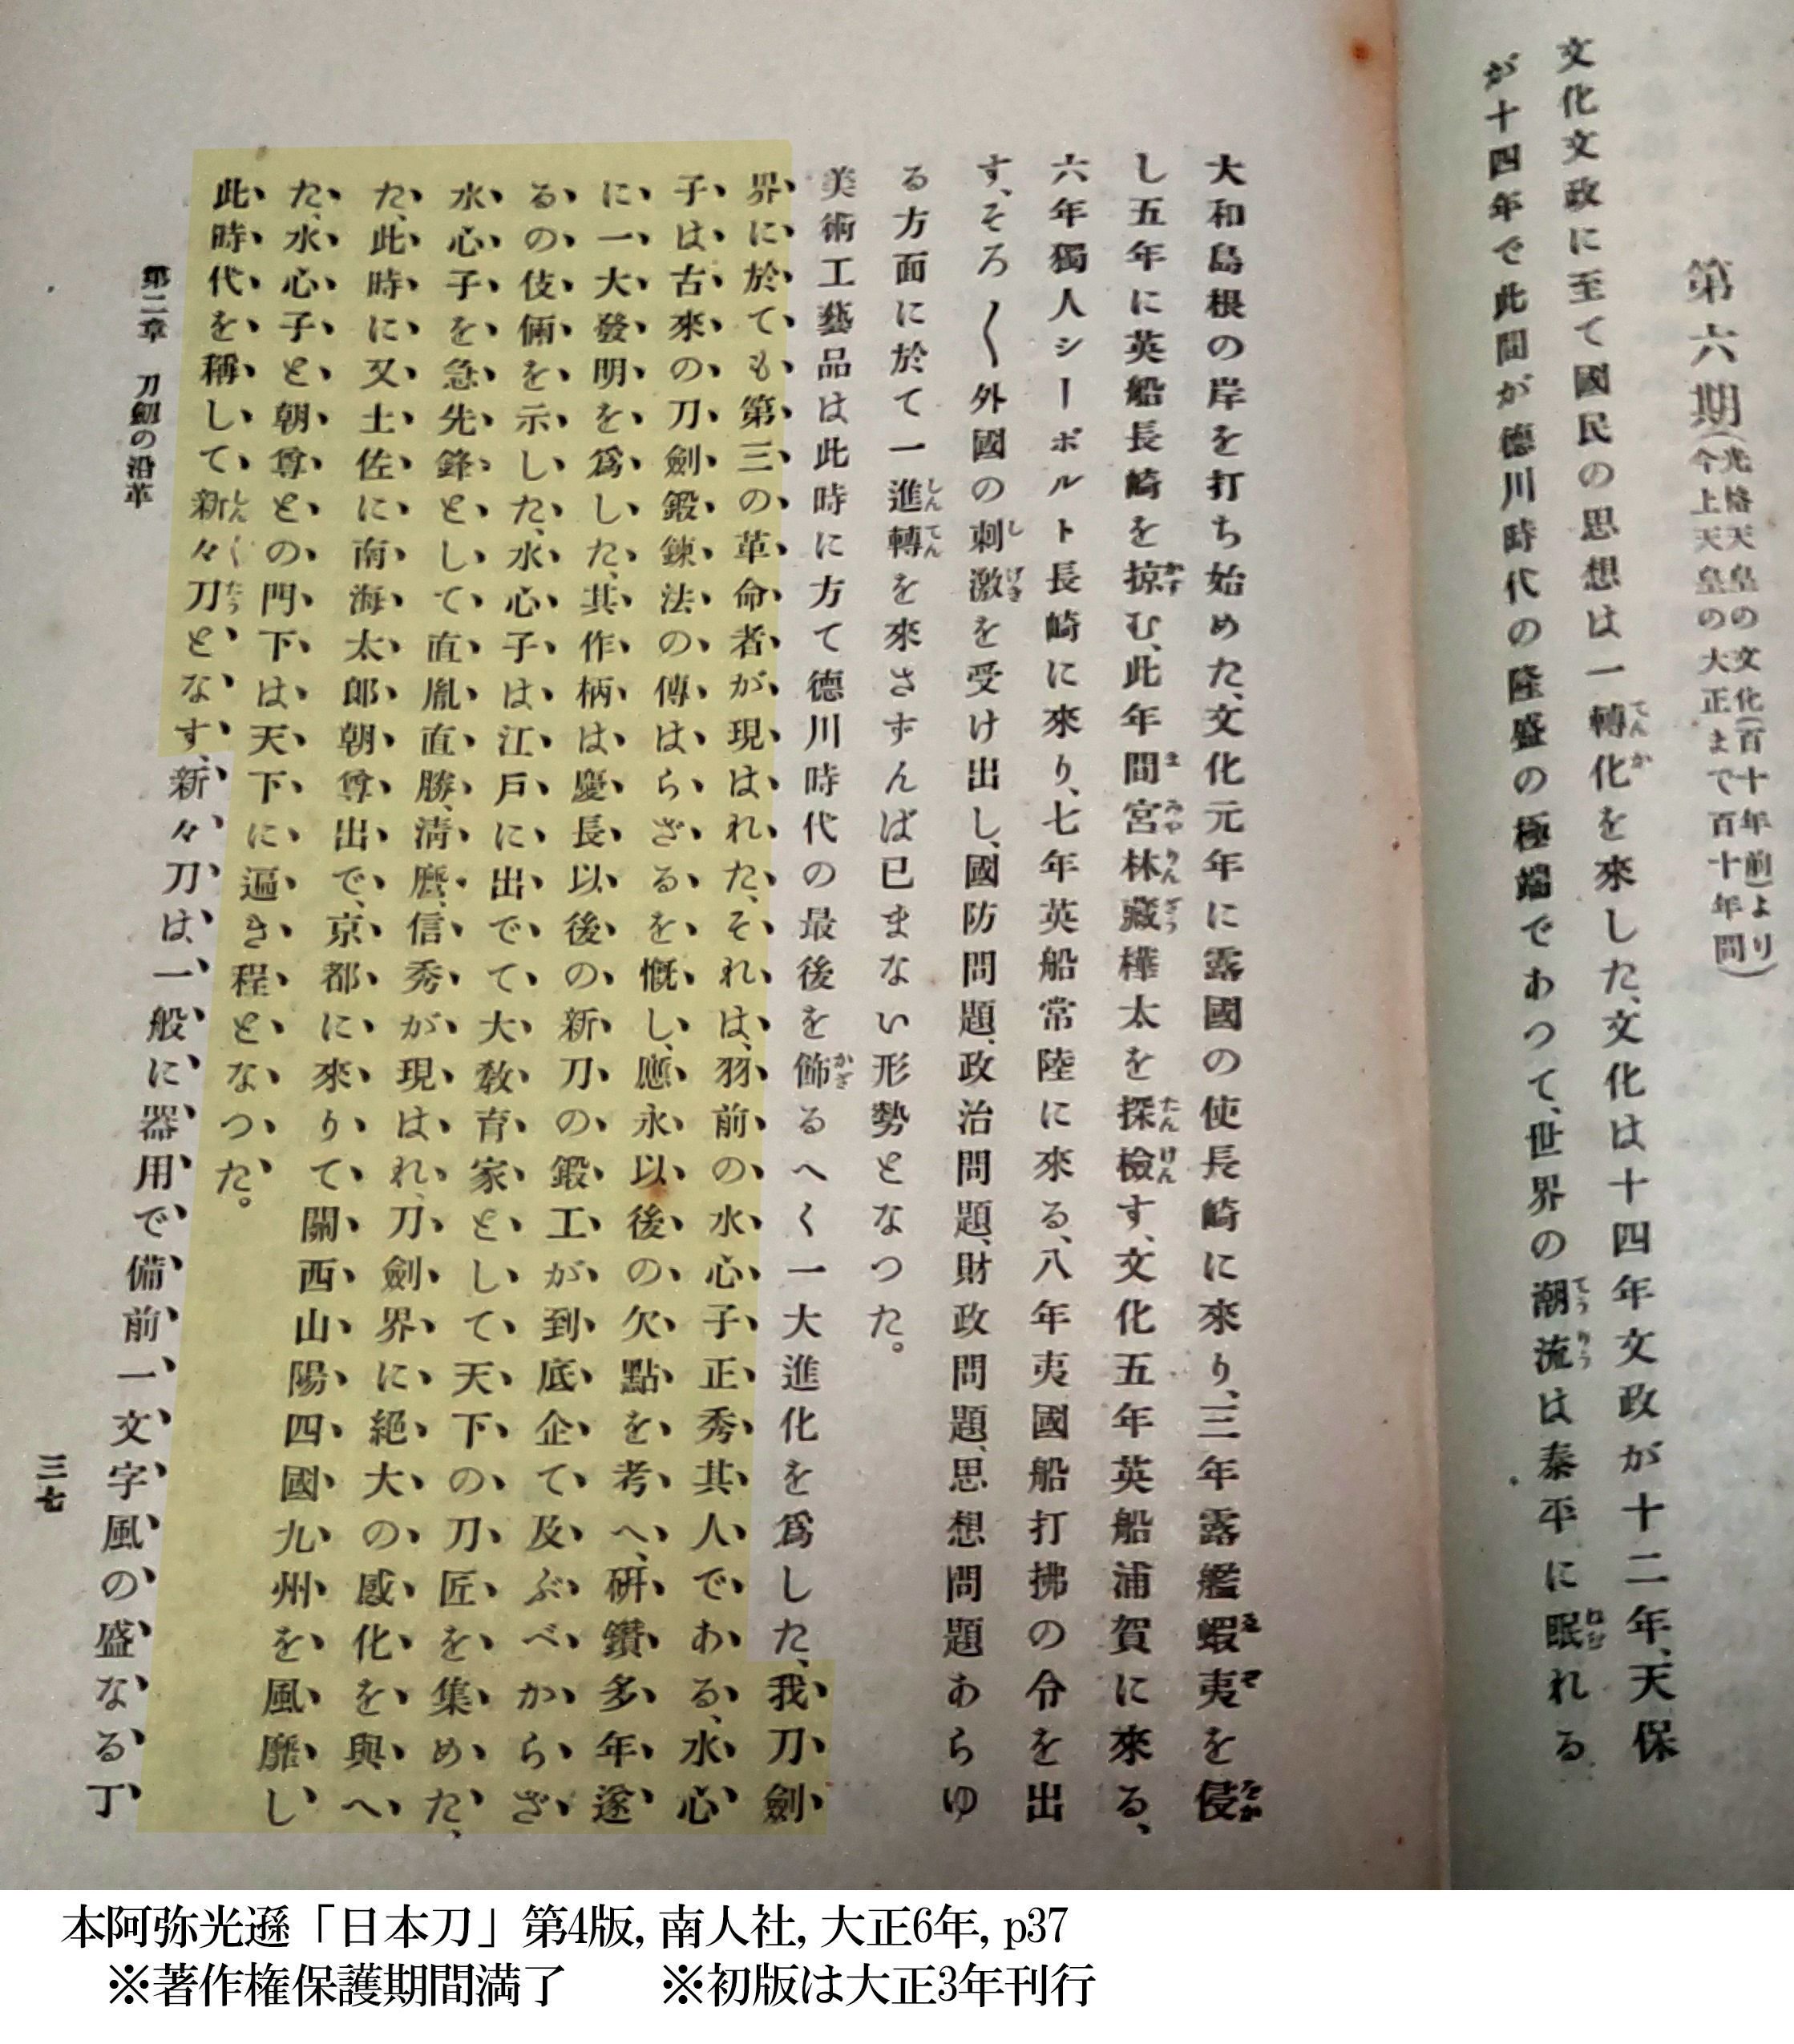 第六期(光格天皇の文化(百十年前)より今上天皇の大正まで百十年間)
文化文政に至て國民の思想は一轉化を來した、文化は十四年文政が十二年、天保
が十四年で此間が德川時代の隆盛の極端でわつて、世界の潮流は泰平に眠れる
大和島根の岸を打ち始めた、文化元年に露國の使長崎に來り、三年露艦蝦夷を侵
し五年に英船長崎を掠む、此年間宮林藏樺太を探檢す、文化五年英船浦賀に來る、
六年獨人シーボルト長崎に來り、七年英船常陸に來る、八年夷國船打拂の令を出
す、そろ〱外國の刺激を受け出し、國防問題、政治問題、財政問題、思想問題あらゆ
る方面に於て一進轉を來さずんば已まない形勢となつた。
美術工藝品は此時に方て德川時代の最後を飾るへく一大進化を爲した、我刀劍
界に於ても第三の革命者が現はれた、それは、羽前の水心子正秀其人でわる、水心
子は古來の刀劍鍛鍊法の傳はらざるを慨し、應永以後の欠點を考へ、研鑽多年遂
に一大發明を爲した、其作柄は慶長以後の新刀の鍛工が到底企て及ぶべからざ
るの伎倆を示した、水心子は江戸に出でて大敎育家として天下の刀匠を集めた、
水心子を急先鋒として直胤直勝、淸麿、信秀が現はれ、刀劍界に絕大の感化を與へ
た、此時に又土佐に南海太郎朝尊出で、京都に來りて關西山陽四國九州を風靡し
た、水心子と朝尊との門下は天下に遍き程となつた。
此時代を稱して新々刀となす、新々刀は一般に器用で備前一文字風の盛なる丁
第二章 刀劍の沿革
三七
本阿弥光遜「日本刀」第4版, 南人社, 大正6年, p37
※著作権保護期間満了 ※初版は大正3年刊行